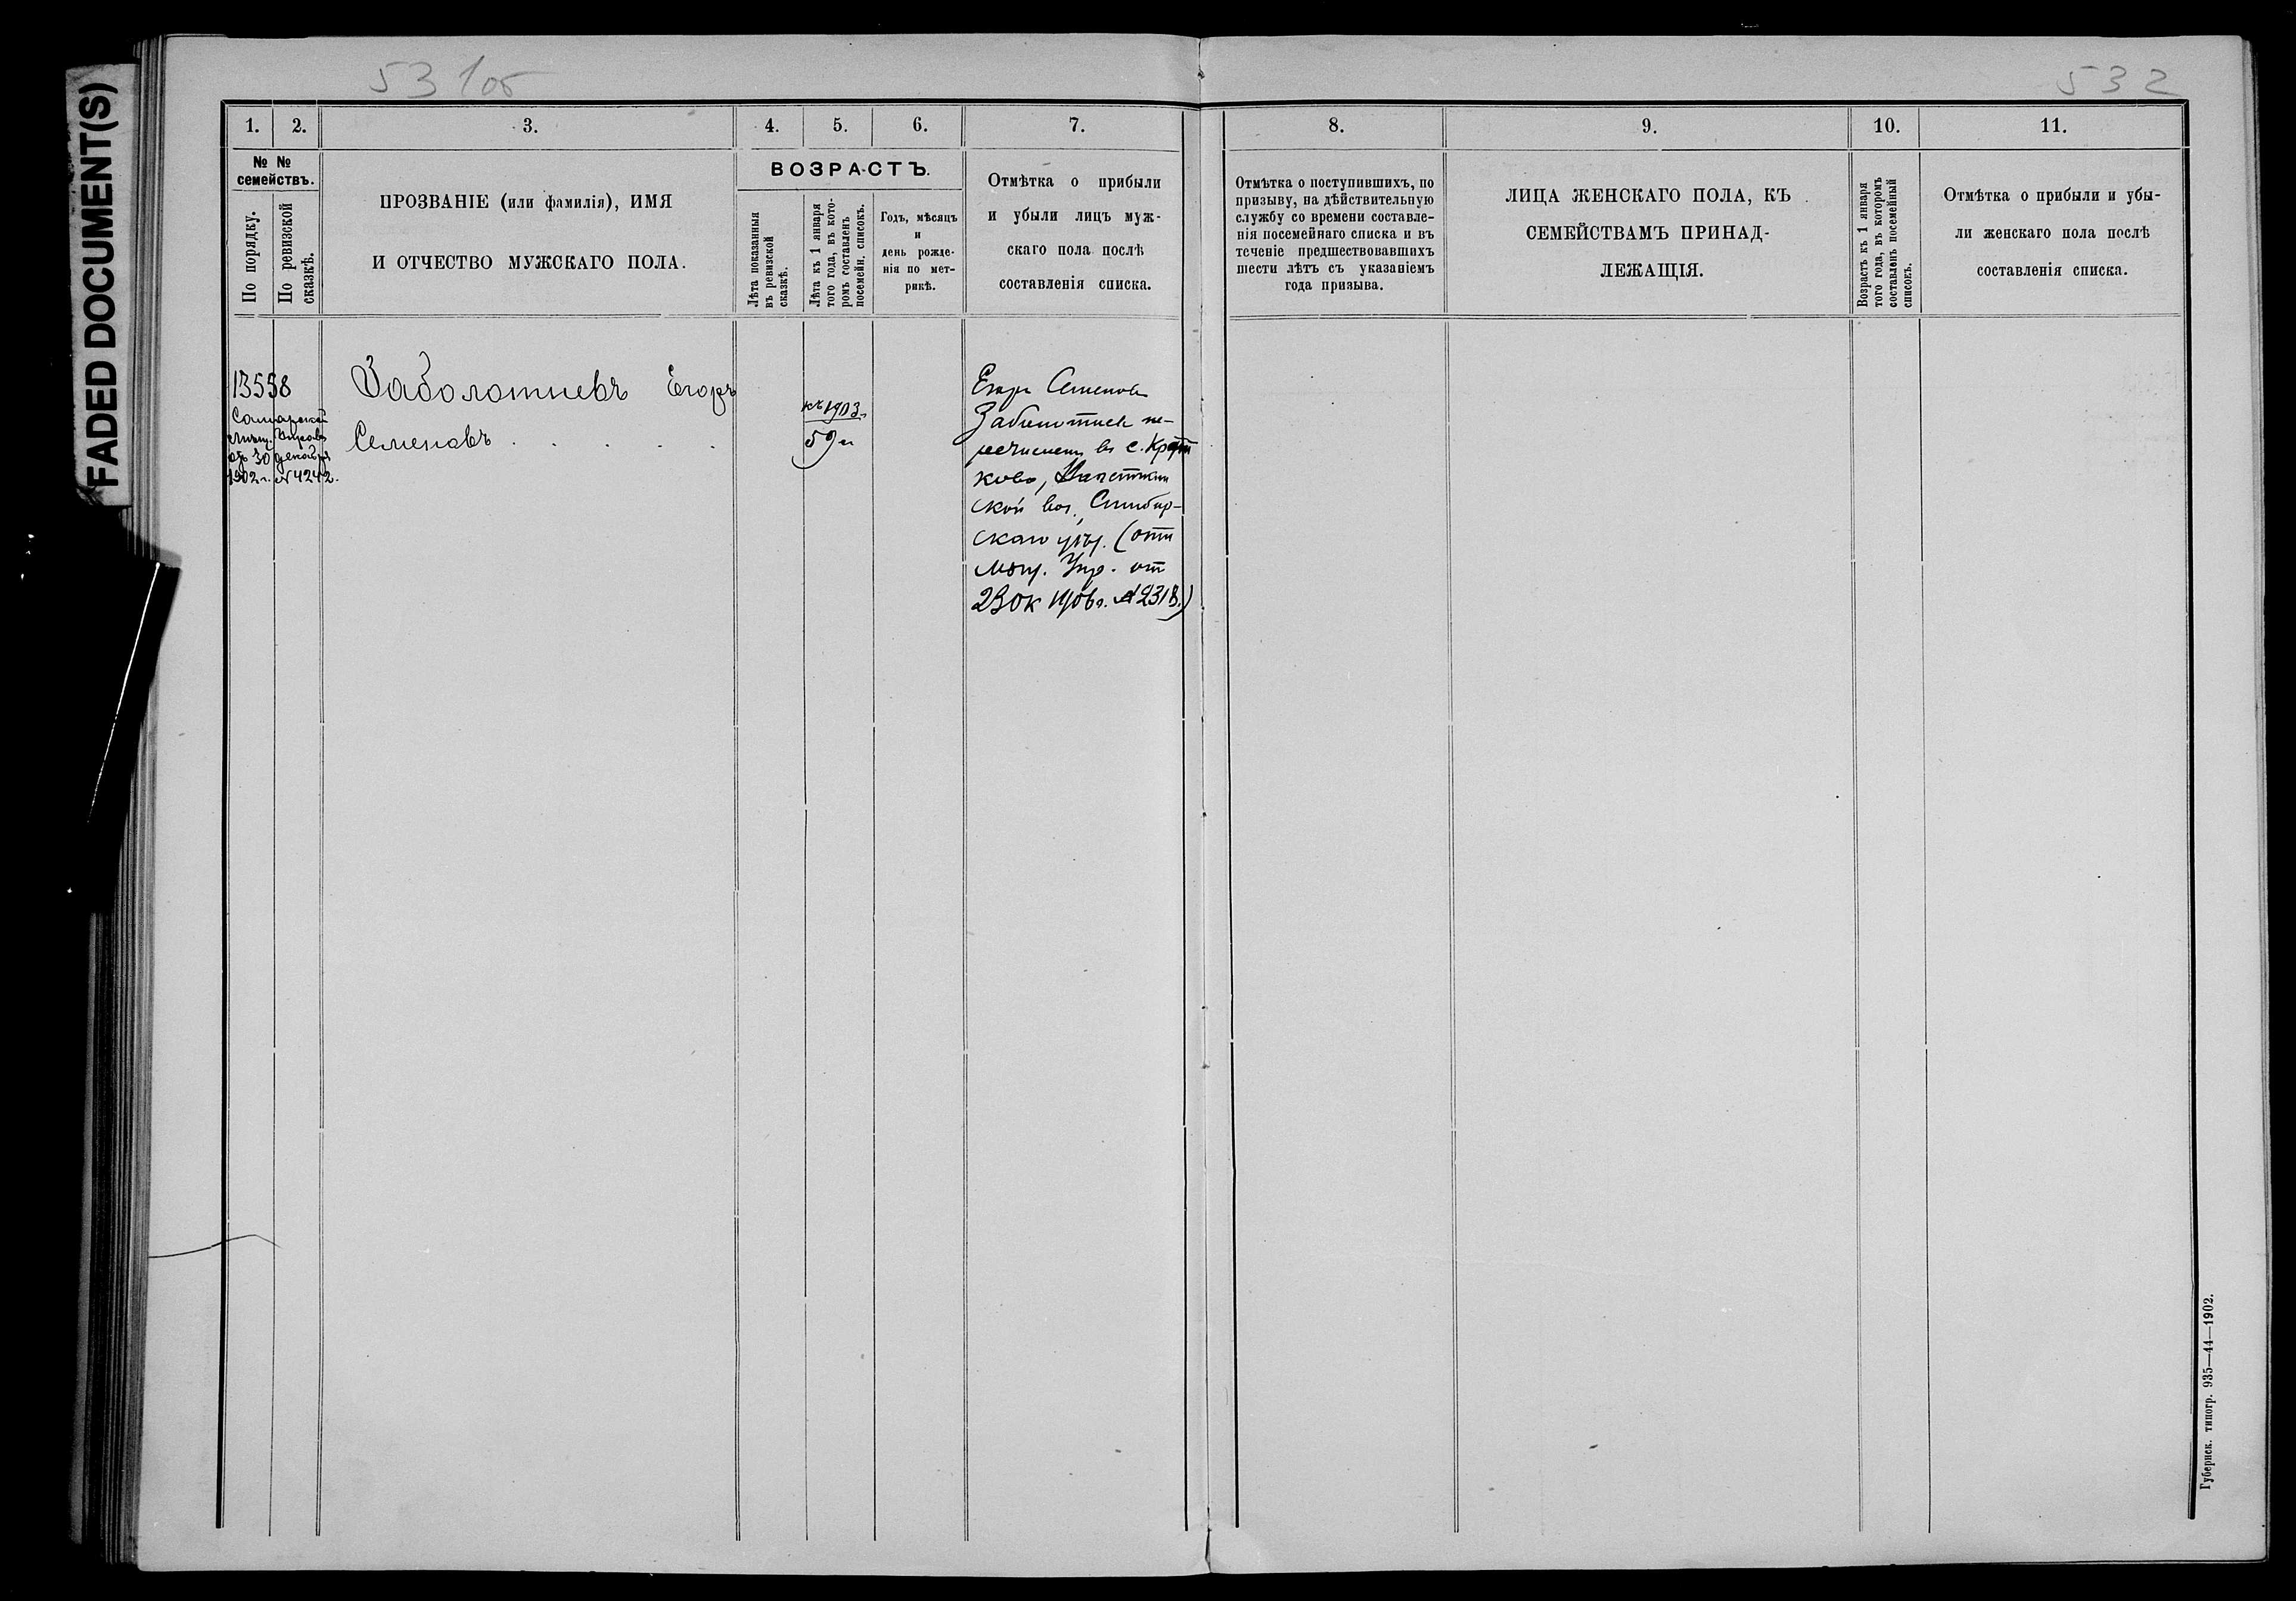 FADED DOCUMENT(S)
531об
532
1.
2.
3.
4.
5.
6.
7.
8.
9.
10.
11.
№ №
семействъ.
По порядку.
По ревизской
сказкѣ.
ПРОЗВАНІЕ (или фамилія), ИМЯ
И ОТЧЕСТВО МУЖСКАГО ПОЛА.
ВОЗРАСТЪ.
Лѣта показанныя
въ ревизской
сказкѣ.
Лѣта къ 1 января
того года, въ кото-
ромъ составленъ
посемейн. списокъ.
Годъ, мѣсяцъ
и
день рожде-
нія по мет-
рикѣ.
Отмѣтка о прибыли
и убыли лицъ муж-
скаго пола послѣ
составленія списка.
Отмѣтка о поступившихъ, по
призыву, на дѣйствительную
службу со времени составле-
нія посемейнаго списка и въ
теченіе предшествовавшихъ
шести лѣтъ съ указаніемъ
года призыва.
ЛИЦА ЖЕНСКАГО ПОЛА, КЪ
СЕМЕЙСТВАМЪ ПРИНАД-
ЛЕЖАЩІЯ.
Возрастъ къ 1 января
того года, въ которомъ
составленъ посемейный
списокъ.
Отмѣтка о прибыли и убы-
ли женскаго пола послѣ
составленія списка.
13558
Самарской
мѣщ. Управы
отъ 30 декабря
1902 г. № 4242.
Заболотневъ Егоръ
Семеновъ . . . . .
къ 1903 г.
59 л
Егоръ Семеновъ
Заболотневъ пе-
речисленъ въ с.
ково,
ской вол., Симбир-
скаго уѣз. (отн
Мѣщ. Упр. от
23 Ок 1906 г. № 2318.)
Губернск. типогр. 935—44—1902.